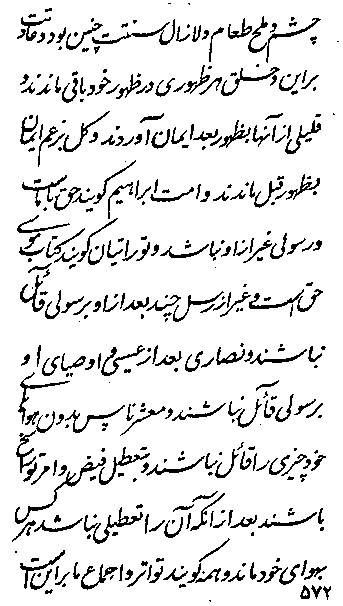 چشم و طمع طعام و لازال سنت چنین بود و عادت
براین و خلق هر ظهوری در ظهور خود باقی ماندند و
قلیلی از آنها بظهور بعد ایمان آوردند و کل بزعم ایمان
بظهور قبل ماندند و امت ابراهیم گویند حق با ماست
و رسولی غیر از او نباشد و توراتیان گویند کتاب موسی
حق است و غیر از رسل چند بعد از او برسولی قائل
نباشند و نصاری بعد از عیسی و اوصیای او
برسولی قائل نباشند و معشر ناس بدون هوای
خود چیزی را قائل نباشند و بتعطیل فیض و امر تو راضی
باشند بعد از آنکه آن را تعطیلی نباشد هر کس
بهوای خود ماند و همه گویند تواتر و اجماع ما بر این است
۵۷۲